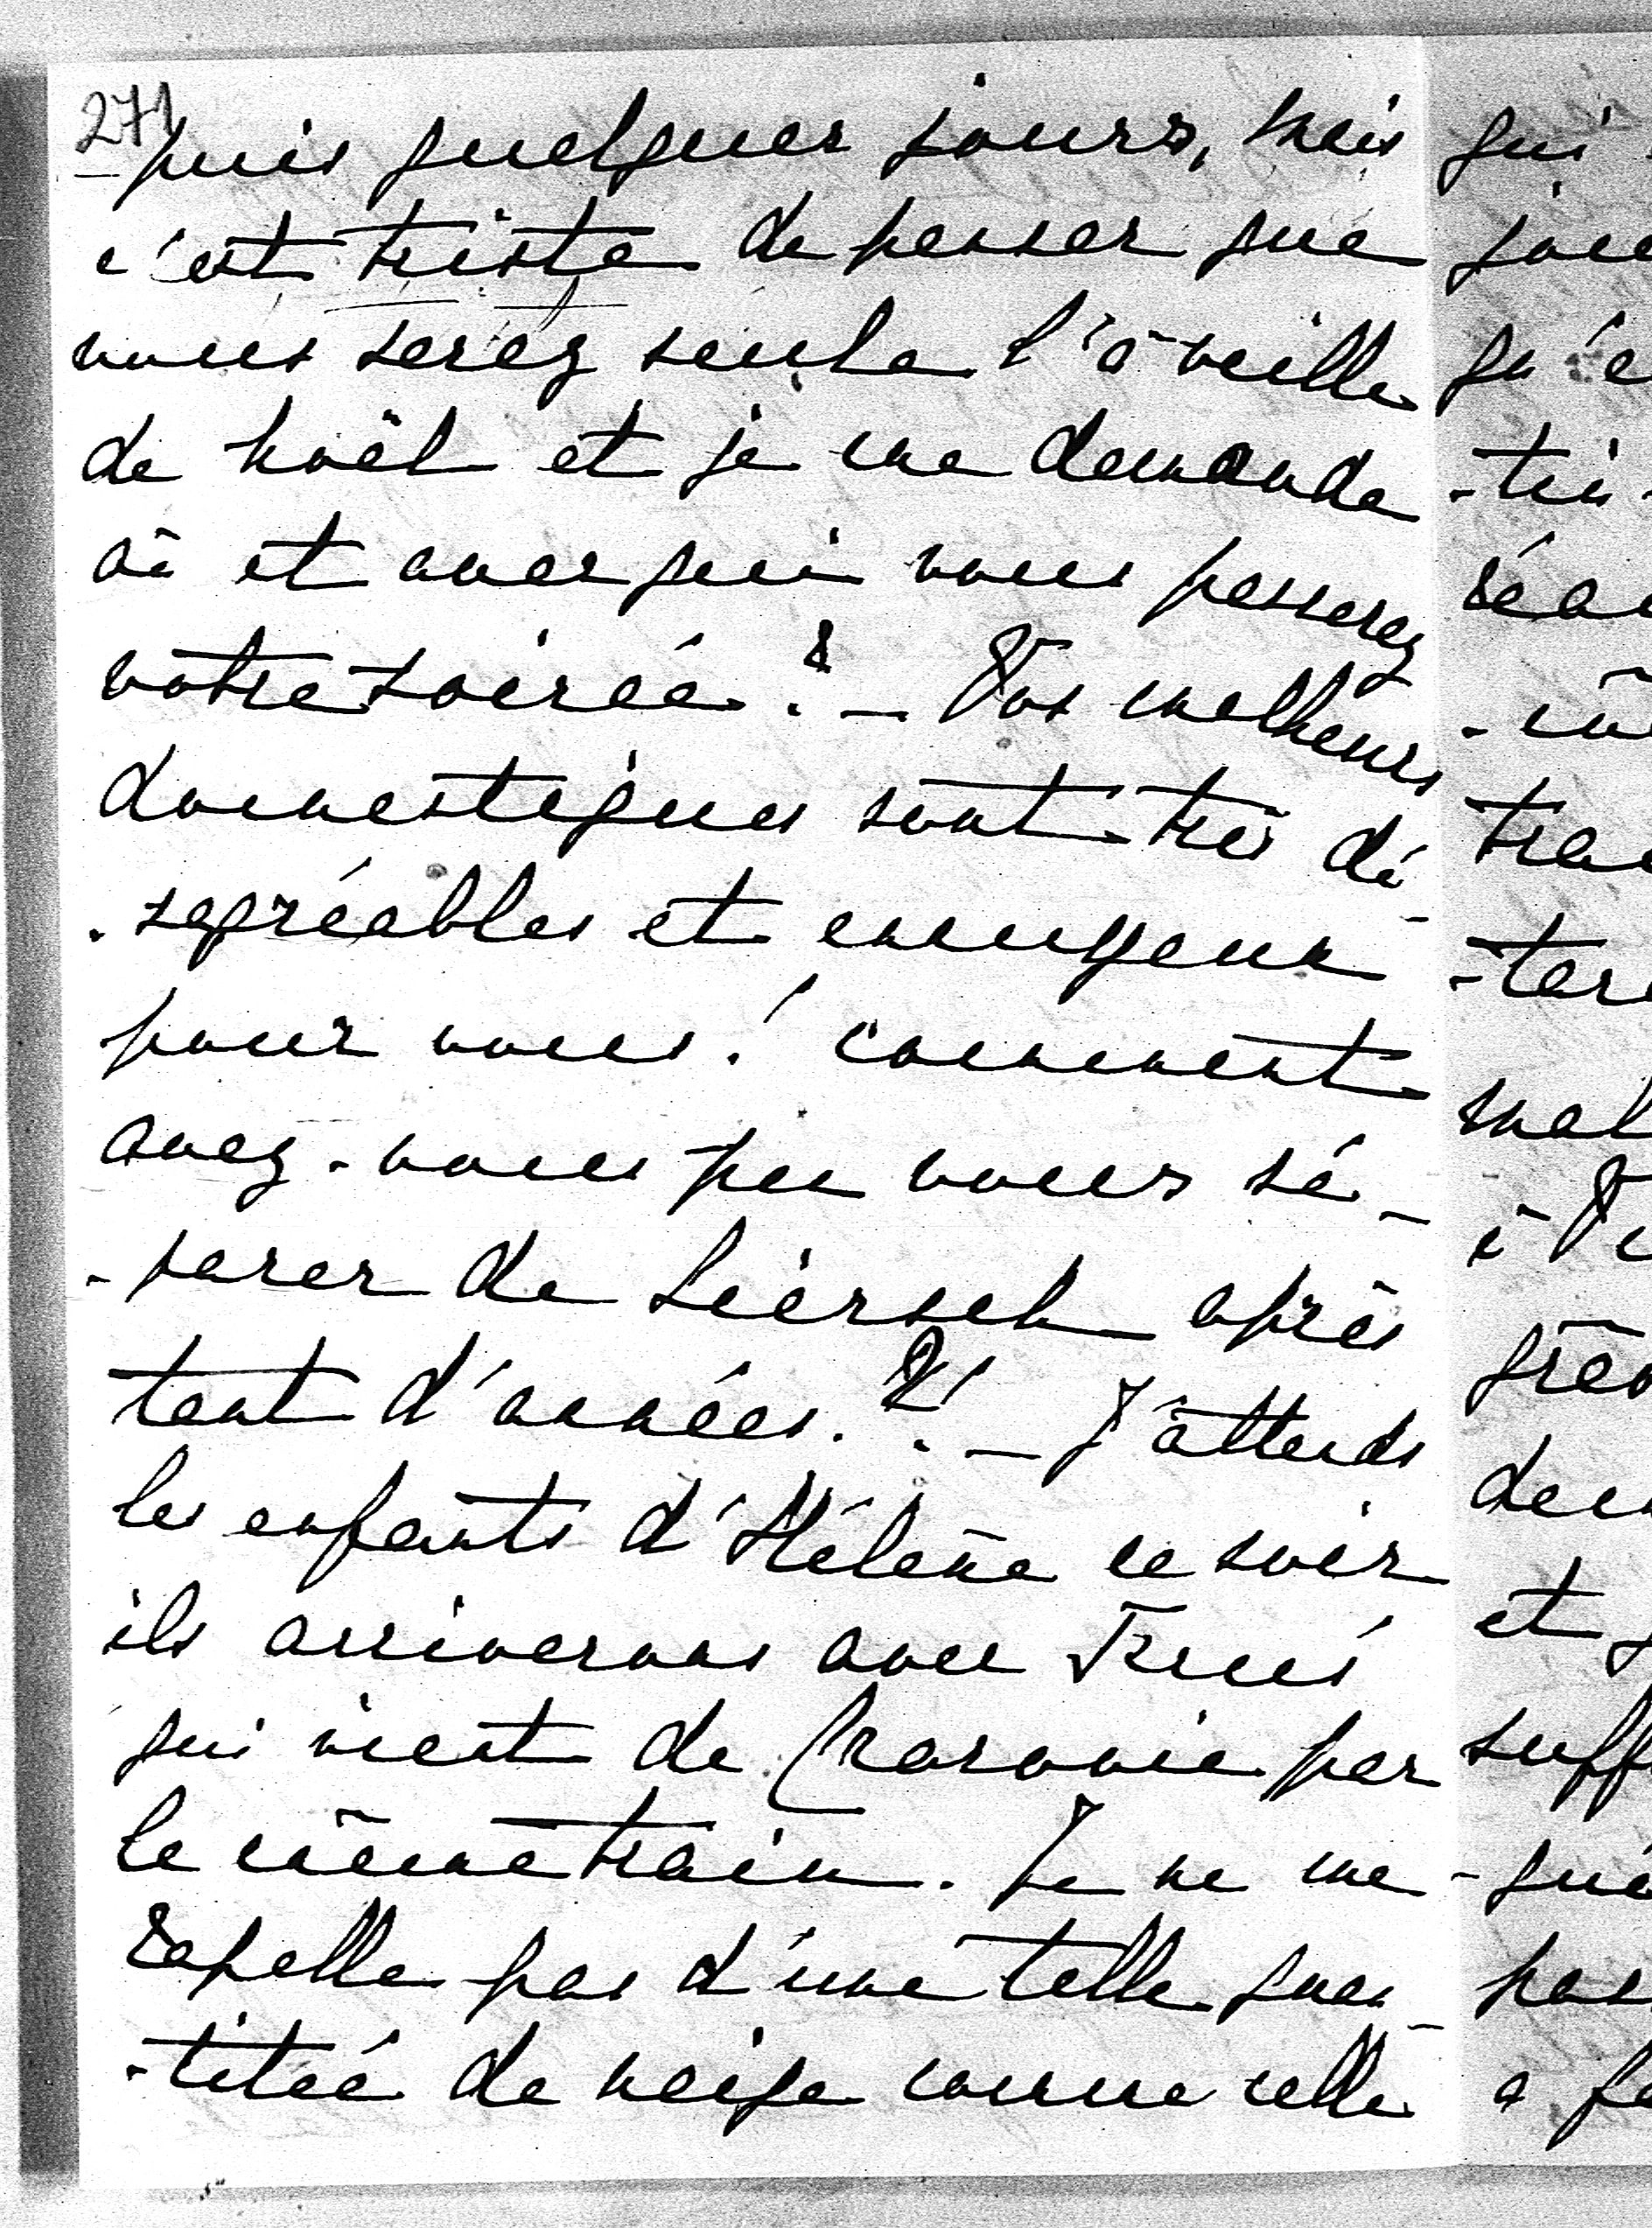 271
-puis quelques jours, mais
c'est triste de penser que
vous serez seule l'à veille
de Noël et je me demande
où et avec qui vous passerez
votre soirée? – Vos malheurs
domestiques sont très dé-
-sagréables et ennuyeux
pour vous! Comment
avez-vous pu vous sé-
-parer de après
tant d'années?! – J'attends
les enfants d'Hélène ce soir
ils arriverons avec
qui vient de par
le même train. Je ne me
rapelle pas d'une telle quan-
-titée de neige comme celle
qui
qu'e
-tin-
mal
et
suff
pas